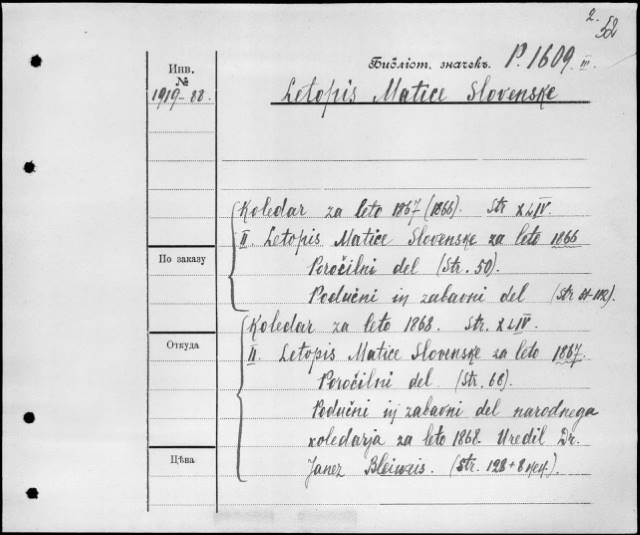 2.
52
Инв.
№
1919-88.
Библіот. значекъ. P. 1609. III.
Letopis Matice Slovenske
Koledar za leto 1867 (1866). Str XLIV.
II. Letopis Matice Slovenske za leto 1866
По заказу
Poročilni del (Str. 50).
Podučni in zabavni del (Str 51-112).
Koledar za leto 1868. Str. XLIV.
Откуда
II. Letopis Matice Slovenske za leto 1867.
Poročilni del. (Str. 68).
Podučni in zabavni del narodnega
koledarja za leto 1868. Uredil Dr.
Цѣва
Janez Bleiweis. (Str. 128+8 чеч.).